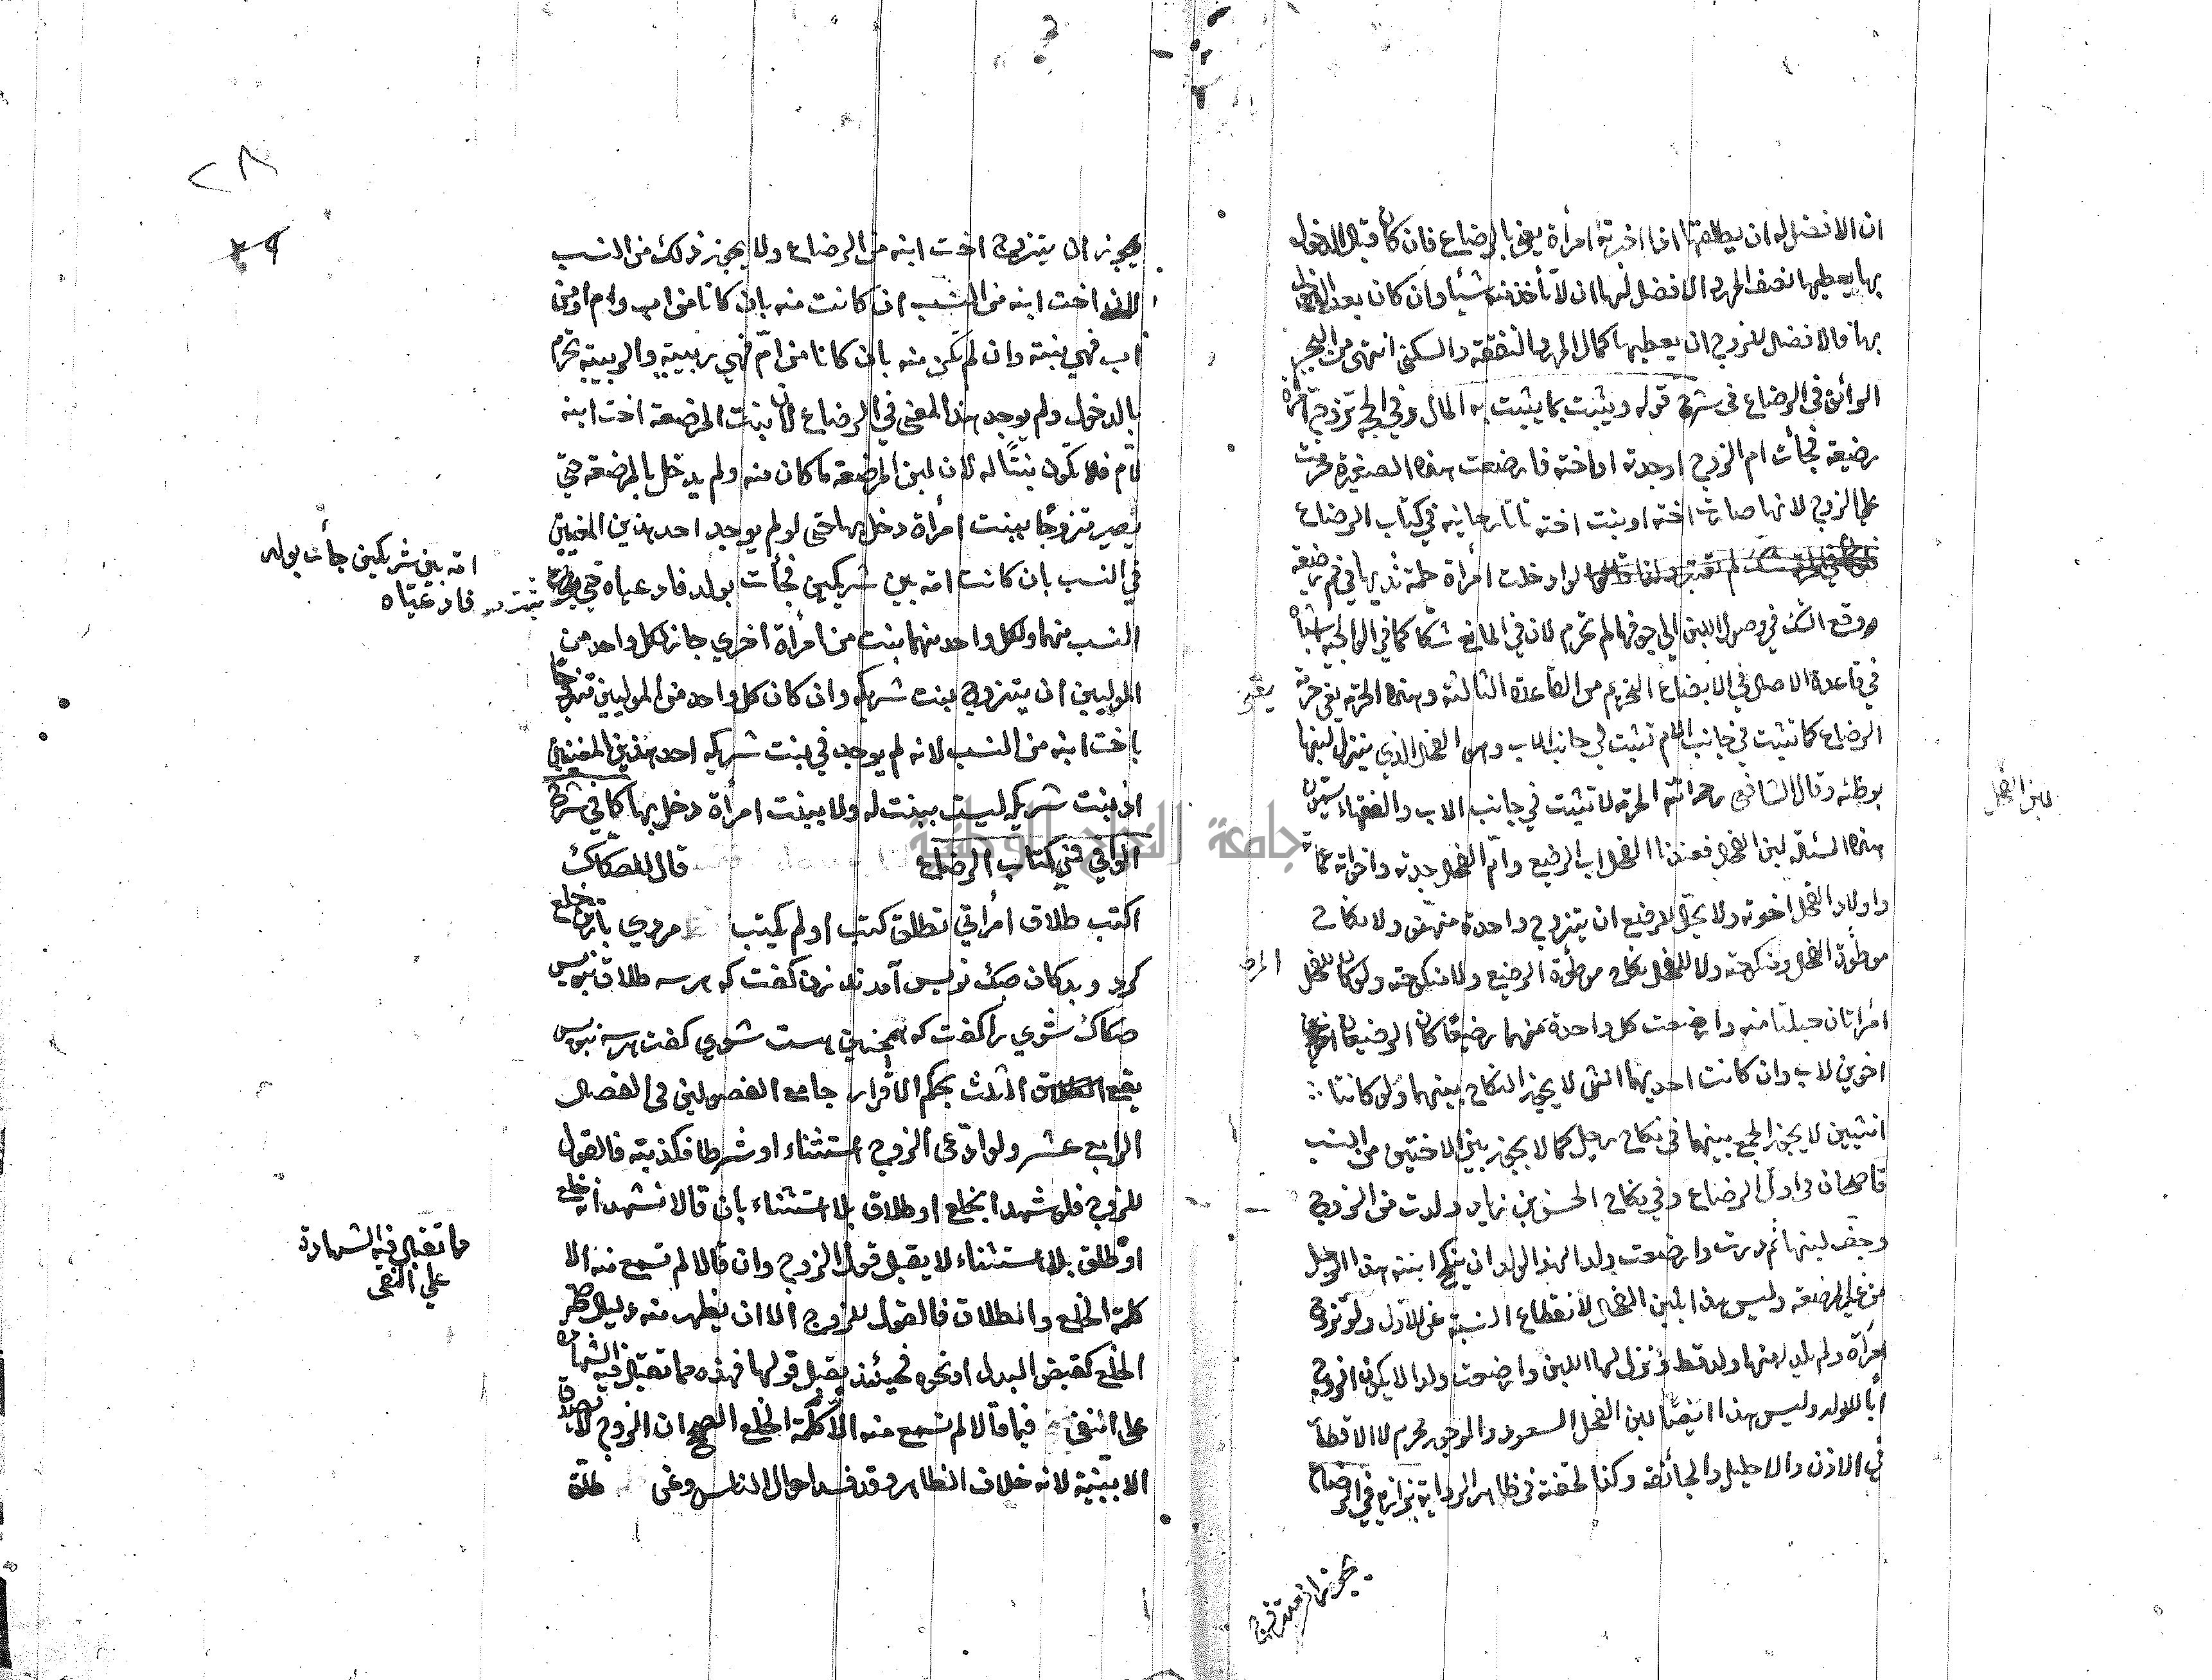 ان الافضل له ان يطلقها اذا اخبرته امرأة يعني بالرضاع فان كان قبل الدخول
بها يعطيها نصف المهر والافضل لها ان لا تأخذ منه شيأ وان كان بعد الدخول
بها فالافضل للزوج ان يعطيها كمال المهر والنفقة والسكنى انتهى من البحر
الرائق في الرضاع في شرح قوله ويثبت بما يثبت به المال وفي الحجة تزوج امرأة
رضيعة فجأت ام الزوج او جدته او اخته فارضعت هذه الصغيرة حرمت
على الزوج لانها صارت اخته او بنت اخته تاتارخانية في كتاب الرضاع
لو ادخلت امرأة حلمة ثديها في فم رضيعة
ووقع الشك في وصول اللبن الى جوفها لم تحرم لان في المانع شكا كما في الولوالجية اشباه
في قاعدة الاصل في الابضاع التحريم من القاعدة الثالثة وهذه الحرمة يعني حرمة
الرضاع كما تثبت في جانب الام تثبت في جانب الاب وهو الفحل الذي ينزل لبنها
بوطئه وقال الشافعي رحمه الله الحرمة لا تثبت في جانب الاب والفقهاء يسمون
لبن الفحل
هذه المسئلة لبن الفحل فعندنا الفحل اب الرضيع وام الفحل جدته واخواته عماته
واولاد الفحل اخوته ولا يحل للرضيع ان يتزوج واحدة منهن ولا نكاح
موطوءة الفحل ومنكوحته ولا للفحل نكاح موطوءة الرضيع ولا منكوحته ولو كان للفحل
امرأتان حبلتا منه وارضعت كل واحدة منهما رضيعا كان الرضيعان
اخوين لاب وان كانت احديهما انثى لا يجوز النكاح بينهما ولو كانتا
انثيين لا يجوز الجمع بينهما في نكاح رجل كما لا يجوز بين الاختين من النسب
قاضيخان في اول الرضاع وفي نكاح الحسن بن زياد ولدت من الزوج
وجف لبنها ثم درت وارضعت ولدا لهذا الولد ان ينكح ابنة هذا الرجل
من غير المرضعة وليس هذا بلبن الفحل لانقطاع النسبة عن الاول ولو تزوج
امرأة ولم تلد منها ولد قط ونزل لها اللبن وارضعت ولدا لا يكون الزوج
أبا للولد وليس هذا ايضا لبن الفحل السعوط والوجور محرم لا الاقطار
في الاذن والاحليل والجائفة وكذا الحقنة في ظاهر الرواية بزازية في الرضاع
يجوز ان يتزوج
٢٨
٣٩
يجوز ان يتزوج اخت ابنه من الرضاع ولا يجوز ذلك من النسب
لان اخت ابنه من النسب ان كانت منه بان كانا من اب وام او من
اب فهي بنته وان لم تكن منه بان كانا من ام فهي ربيبته والربيبة تحرم
بالدخول ولم يوجد هذا المعنى في الرضاع لان بنت المرضعة اخت ابنه
لام فلا يكون بنتا له لان لبن المرضعة ما كان منه ولم يدخل بالمرضعة حتى
يصير متزوجا ببنت امرأة دخل بها حتى لو لم يوجد احد هذين المعنيين
في النسب بان كانت امة بين شريكين فجأت بولد فادعياه حتى يثبت
امة بين شريكين جأت بولد
فادعياه
النسب منهما ولكل واحد منهما بنت من امرأة اخرى جاز لكل واحد من
الموليين ان يتزوج بنت شريكه وان كان كل واحد من الموليين متزوجا
باخت ابنه من النسب لانه لم يوجد في بنت شريكه احد هذين المعنيين
اذ بنت شريكه ليست ببنت له ولا ببنت امرأة دخل بها كما في شرح
الوافي في كتاب الرضاع قال للصكاك
اكتب طلاق امرأتي تطلق كتب او لم يكتب مردي بازن خلع
كرد وبدكان صك نويس آمدند زن كفت كه سه طلاق بنويس
صكاك شوي را كفت كه همچنين است شوي كفت بنويس
يقع الثلث بحكم الاقرار جامع الفصولين في الفصل
الرابع عشر ولو ادعى الزوج استثناء او شرطا فكذبته فالقول
للزوج فلو شهدا بخلع او طلاق بلا استثناء بان قالا نشهد انه خلع
او طلق بلا استثناء لا يقبل قول الزوج وان قالا لم نسمع منه الا
ما تقبل فيه الشهادة
على النفي
كلمة الخلع والطلاق فالقول للزوج الا ان يظهر منه دليل
الخلع كقبض البدل او نحوه فحينئذ يقبل قولها فهذه مما تقبل فيه الشهادة
على النفي فيما قالا لم نسمع منه الا كلمة الخلع الصحيح ان الزوج لا يصدق
الا ببينة لانه خلاف الظاهر وقد فسد احوال الناس وعن
جامعة النجاح الوطنية